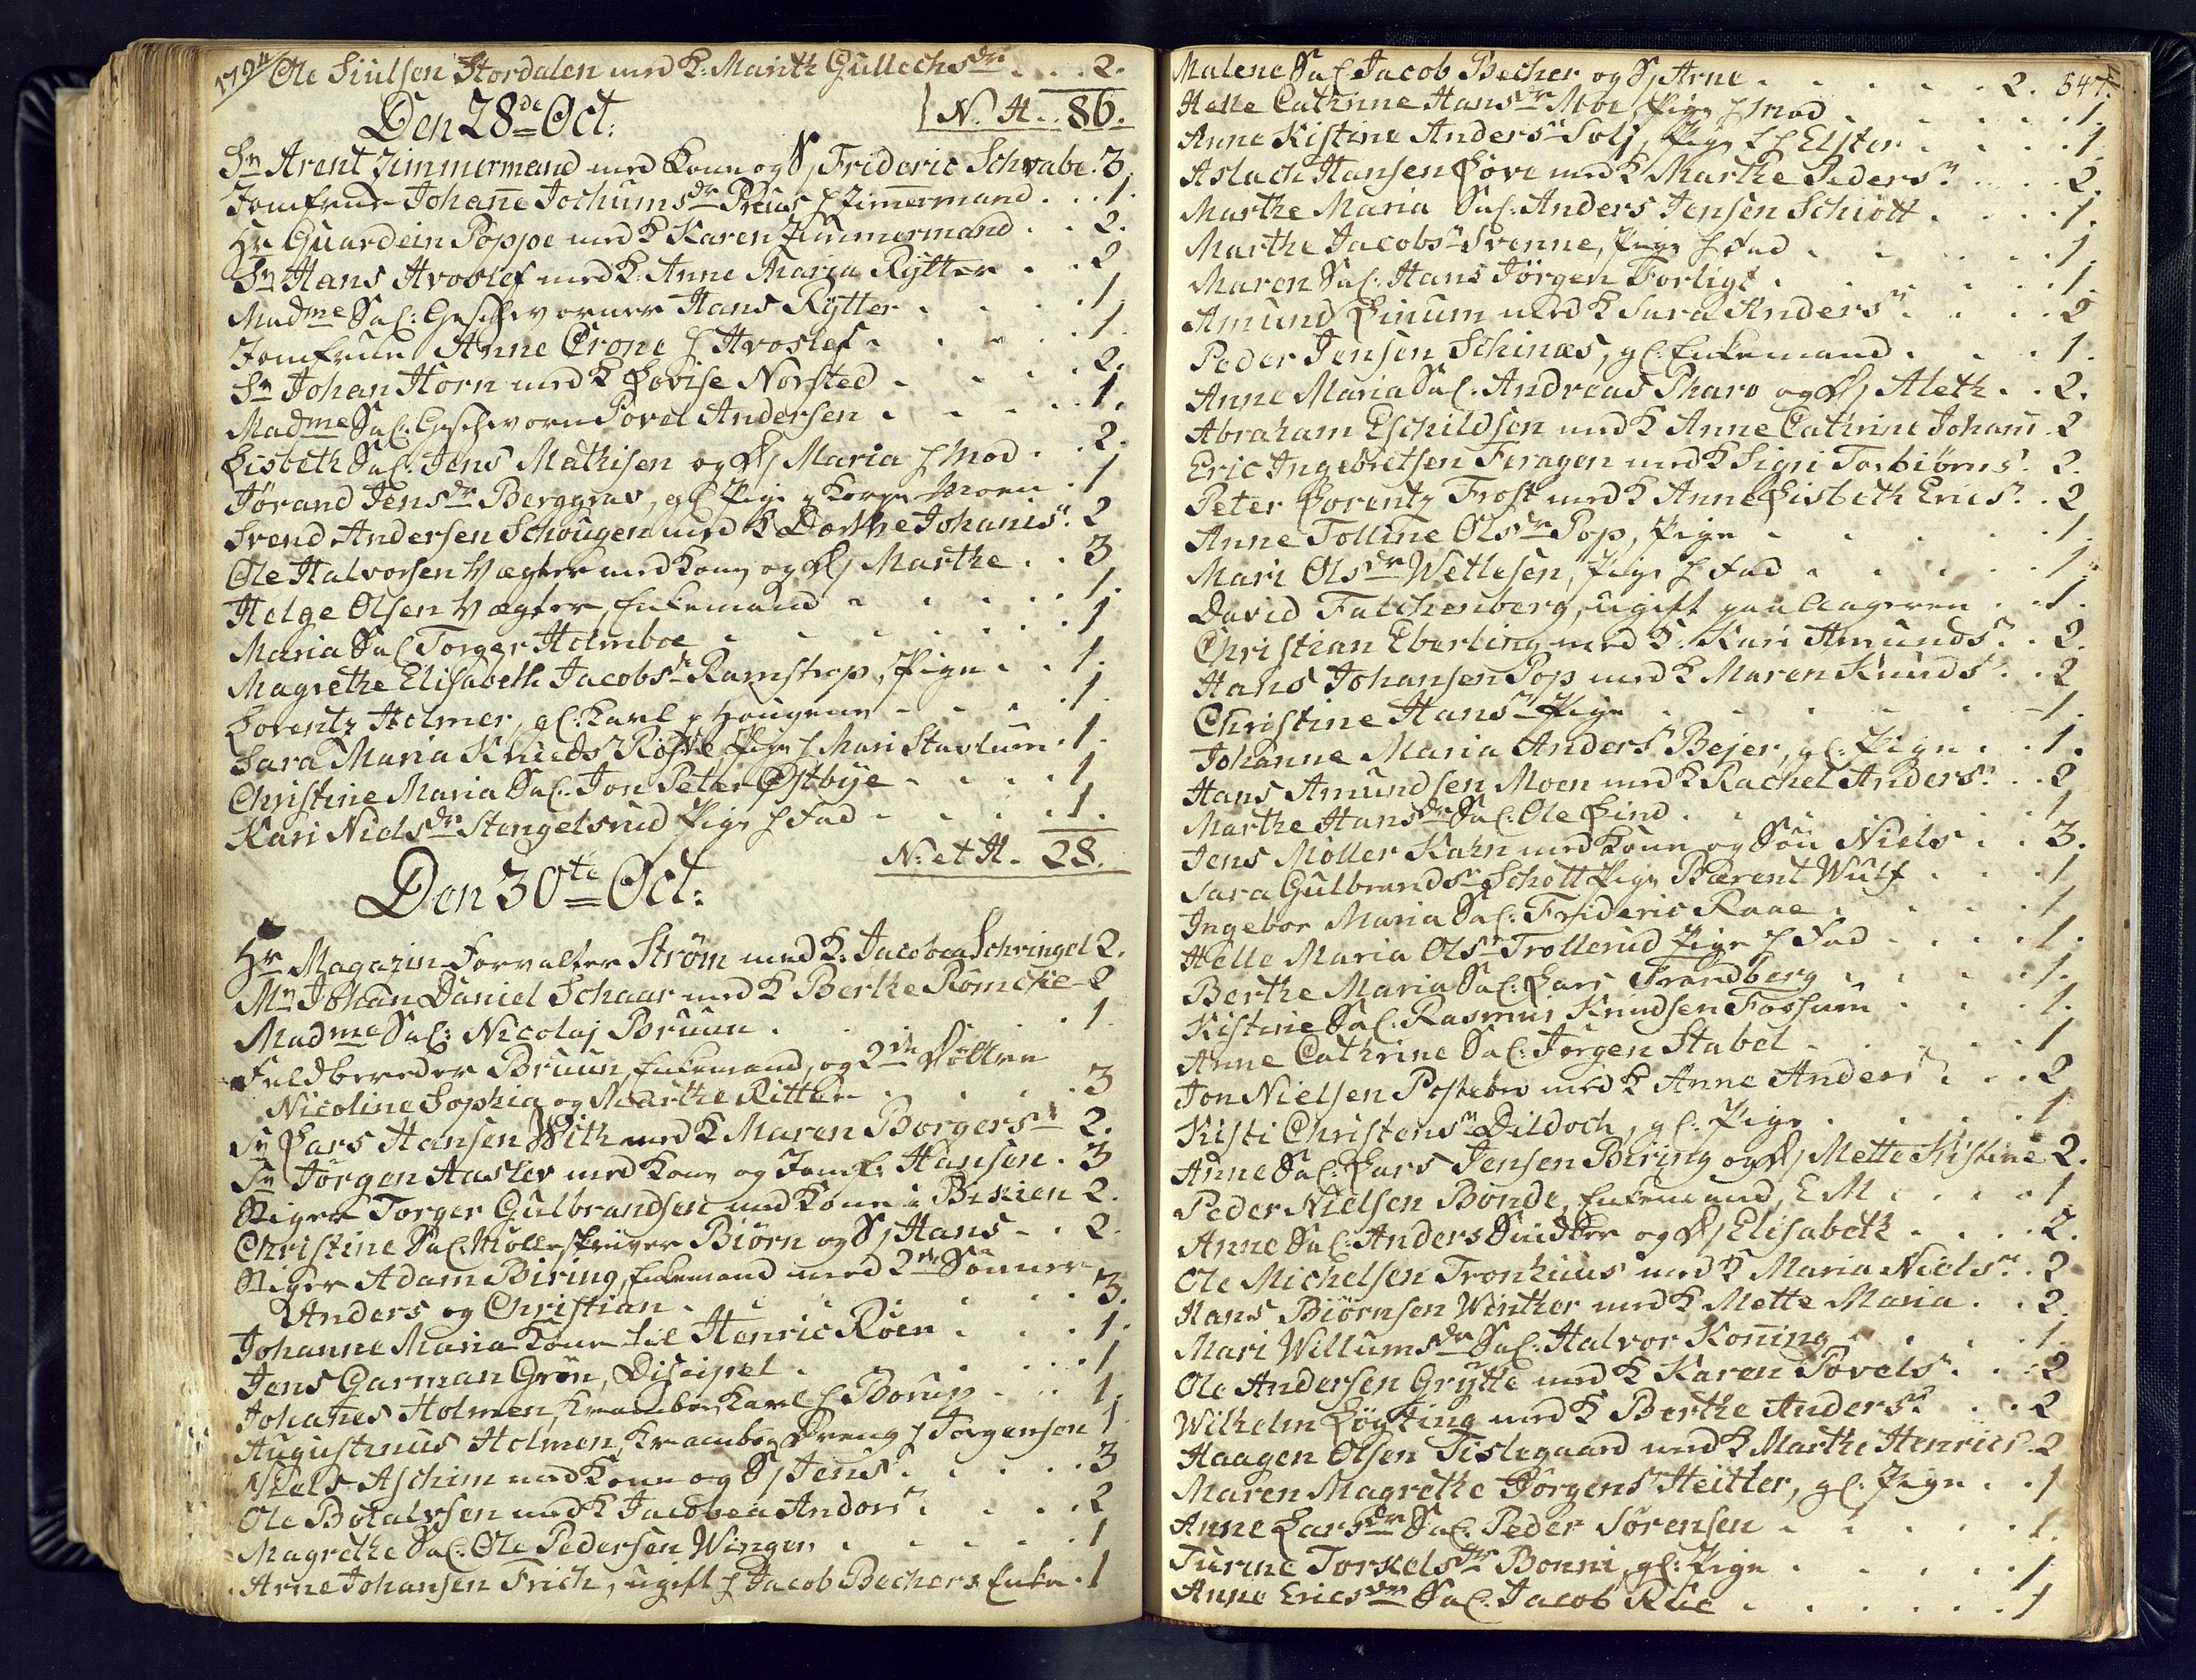 1794
Ole Siulsen Stordalen med K: Marith Gullechsdr . . . 2.
N. H. . 86.
Den 28de Oct:
Sr Arent Zimmermand med Kone og S. Frideric Schvabe . 3.
Jomfrue Johane Jochumsdr Preus h Zimermand . . . 1.
Hr Guardein Poppe med K Karen Zimmermand . . 2.
Sr Hans Hvoslef med K: Anne Maria Rytter . . 2
Madme Sal: Geschworner Hans Rytter . . . . 1.
Jomfrue Anne Crone h Hvoslef . . . . 1.
Sr Johan Horn med K Lovise Norsted . . . . 2.
Madme Sal: Geschworn Povel Andersen . . . . 1.
Lisbeth Sal: Jens Mathisen og D. Maria h Mod . . 2.
Jørand Jensdr Berggrav, gl Pige Moen . 1
Svend Andersen Schougen med K Dorthe Johanis: 2
Ole Halvorsen Vægter med Kone og D. Marthe . . 3
Helge Olsen Vægter, Enkemand . . . . . 1.
Maria Sal Torger Holmboe . . . . . . 1
Magrethe Elisabeth Jacobsdr Ramstrop, Pige . . 1.
Lorentz Holmer, gl: Karl p Haugene . . . . 1.
Sara Maria Knudsr Pige h Mari Stavlum . 1.
Christine Maria Sal: Jon Peter Østbye . . . . 1
Kari Nielsdr Stengelsrud Pige h Fad . . . . . 1.
N: et H. 28.
Den 30te Oct:
Hr Magazin Forvalter Strøm med K: Jacobea Schringel 2.
Mr Johan Daniel Schaar med K Berthe Romcke 2
Madme Sal: Nicolaj Bruun . . . . . 1.
Feldbereder Bruun, Enkemand, og 2de Døttre
Nicoline Sophia og Marthe Ritter . . . . 3
Sr Lars Hansen With med K Maren Borgersdr 2.
Sr Jørgen Haslev med Kone og Jomf: Hansen . 3
Stiger Torger Gulbrandsen med Kone i Bikien 2.
Christine Sal: Mølleskriver Biørn og S. Hans . . 2.
Stiger Adam Biring, Enkemand med 2de Sønner
Anders og Christian . . . . . . 3.
Johanne Maria Kone til Henric Roen . . . . 1.
Jens Garman Grøn, Discipel . . . . . . 1
Johanes Holmen, Krambøe Karl h Borup . . . 1.
Augustinus Holmen, Krambøe Dreng h Jørgensen 1
Niels Aschim med Kone og S. Jens . . . . . 3
Ole Botalvsen med K Jacobea Andersr . . . . 2
Magrethe Sal: Ole Pedersen Winger . . . . . 1
Arne Johansen Frich, ugift h Jacob Bechers Enke . 1
547.
Malene Sal Jacob Becher og S. Arne . . . . . 2.
Helle Cathrine Hansdr Moe, Pige h Mod . . . . . 1.
Anne Kistine Andersr Solj, Pige h Elster . . . . 1
Aslach Hansen Løve med K Marthe Pedersr . . . . 2.
Marthe Maria Sal: Anders Jensen Schiøtt . . . . 1.
Marthe Jacobsr Svenne, Pige h Fad . . . . . . 1.
Maren Sal: Hans Jørgen Forligt . . . . . . 1.
Amund Linum med K Sara Andersr . . . . 2
Peder Jensen Schinæs, gl: Enkemand . . . . 1.
Anne Maria Sal: Andreas Pharo og D. Aleth . . 2.
Abraham Eschildsen med K Anne Cathrine Johann 2
Eric Ingebretsen Feragen med K Sigri Torbiørnsr . 2.
Peter Lorentz Frost med K Anne Lisbeth Ericsr . 2
Anne Tolline Olsdr Pop, Pige . . . . . . 1.
Mari Olsdr Wetlesen, Pige h Fad . . . . . 1.
David Falchenberg, ugift paa Aageren . . 1.
Christian Eberling med K: Kari Amundsr . 2.
Hans Johansen Pop med K Maren Knudsr . . 2
Christine Hansr Pige . . . . . . . 1.
Johanne Maria Andersr Bejer, gl: Pige . . . 1.
Hans Amundsen Moen med K Rachel Andersr . . 2
Marthe Hansdr Sal: Ole Lind . . . . . . 1
Jens Møller Kahn med Kone og Søn Niels . . 3.
Sara Gulbrandsr Schott Pige Bærent Wulf . . . 1
Ingebor Maria Sal: Frideric Raae . . . . . 1
Helle Maria Olsr Trollerud Pige h Fad . . . . 1.
Berthe Maria Sal: Lars Strandberg . . . . . 1.
Kistine Sal: Rasmus Knudsen Fossum . . . . 1.
Anne Cathrine Sal: Jørgen Stabel . . . . . 1
Jon Nielsen med K Anne Andersr . . . 2
Kisti Christensr Dildoch, gl: Pige . . . . . 1
Anne Sal: Lars Jensen Biring og D. Mette Kistine 2.
Peder Nielsen Bonde, Enkemand, E M . . . . 1
Anne Sal: Anders Snidker og D. Elisabeth . . . . 2.
Ole Michelsen Tronhuus med K Maria Nielsr . . 2
Hans Biørnsen Winther med K Mette Maria . . 2.
Mari Willumsdr Sal: Halvor Koning . . . . . 1.
Ole Andersen Grytte med K Karen Povelsr . . . 2
Wilhelm Løgting med K Berthe Andersr . . . 2
Haagen Olsen Tislegaard med K Marthe Henrics . 2
Maren Magrethe Jørgensr Heitler, gl: Pige . . 1
Anne Larsdr Sal: Peder Sørensen . . . . . . 1.
Turine Torkelsdr Bonni, gl: Pige . . . . . 1
Anne Ericsdr Sal: Jacob Rue . . . . . . . 1